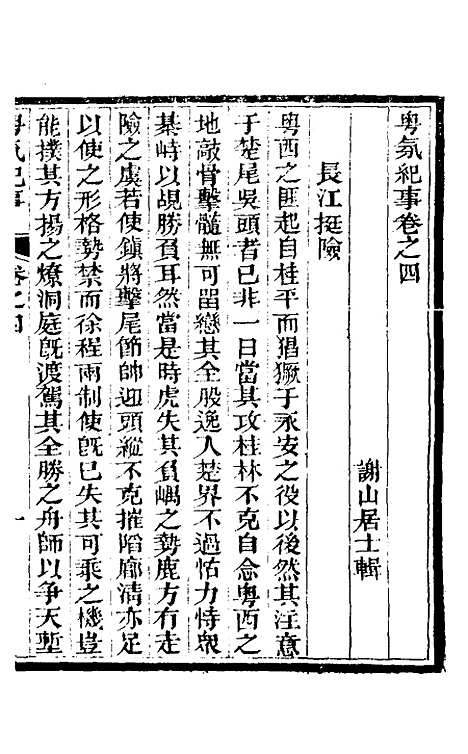 粵氛紀事卷之四
謝山居士輯
長江挺險
粵西之匪起自桂平而猖獗于永安之役以後然其注意
于楚尾吳頭者已非一日當其攻桂林不克自念粵西之
地敲骨擊髓無可留戀其全股逸人楚界不過怙力恃衆
棊峙以覘勝負耳然當是時虎失其負嵎之勢鹿方有走
險之虞若使鎮將擊尾節帥迎頭縱不克摧陷廓清亦足
以使之形格勢禁而徐程兩制使旣已失其可乘之機豈
能撲其方揚之燎洞庭旣渡駕其全勝之舟師以爭天塹
粵氛紀事
卷之四
一